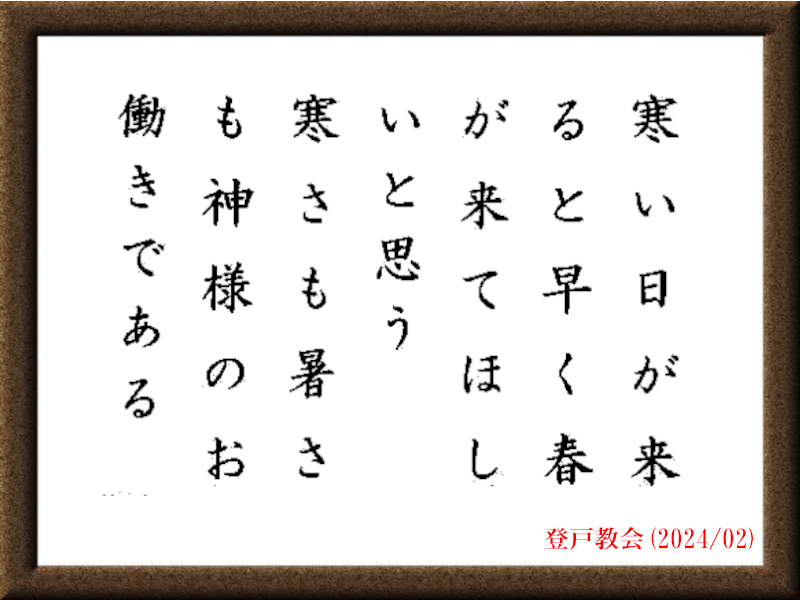 寒い日が来
ると早く春
が来てほし
いと思う
寒さも暑さ
も神様のお
働きである
登戸教会(2024/02)